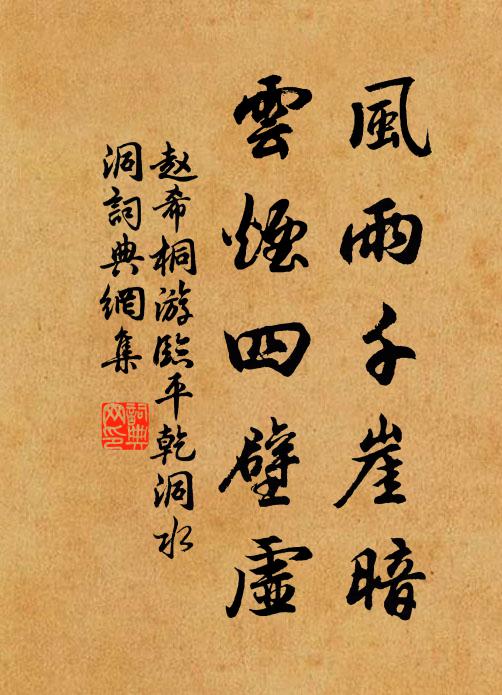 風雨千崖暗
雲煙四壁虛
赵希桐游臨平乾洞水
洞詞典網集
詞典
网印